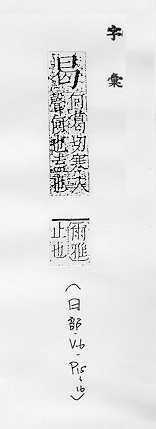 字彙
曷
何葛切寒入
聲何也盍也
爾雅
止也
(日部-V.6-